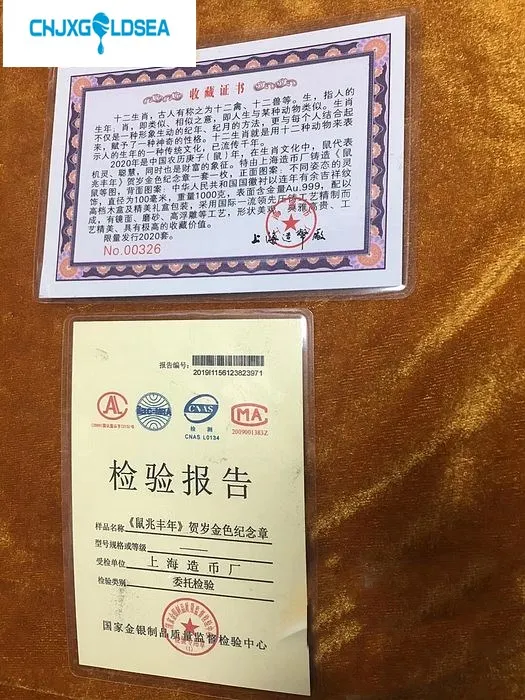 CHJXGLDSEA
收藏证书
十二生肖，古人有称之为十二禽、十二兽等。生，指人的
生年，肖，即类似、相似之意，即人生与某种动物类似。生肖
不仅是一种形象生动的纪年、纪月的方法，更与每个人结合起
来，赋予了一种神奇的性格。十二生肖就是用十二种动物来表
示人的生年的一种传统文化，已流传千年。
2020年是中国农历庚子（鼠）年，在生肖文化中，鼠代表
机灵、聪慧，同时也是财富的象征。特由上海造币厂铸造《鼠
兆丰年》贺岁金色纪念章一套一枚，正面图案：不同姿态的灵
鼠等图，背面图案：中华人民共和国国徽衬以连年有余吉祥纹
饰，直径为100毫米，重量1000克，表面含金量Au.999，配以
高档木盒及精美礼盒包装，采用国际一流领先压铸工艺精制而
成，有镜面、磨砂、高浮雕等工艺，形状美观、典雅高贵、工
艺精美、具有极高的收藏价值。
限量发行2020套。
No.00326
上海造币厂
报告编号：
2019I1156123823971
CNAS
检测
CNAS L0134
MA
2009001383Z
检验报告
样品名称《鼠兆丰年》贺岁金色纪念章
型号规格或等级
受检单位 上海造币厂
检验类别： 委托检验
国家金银制品质量监督检验中心